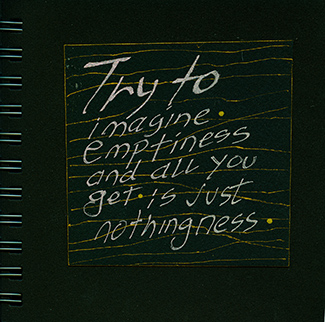 Try to
imagine
emptiness
and all you
get is just
nothingness